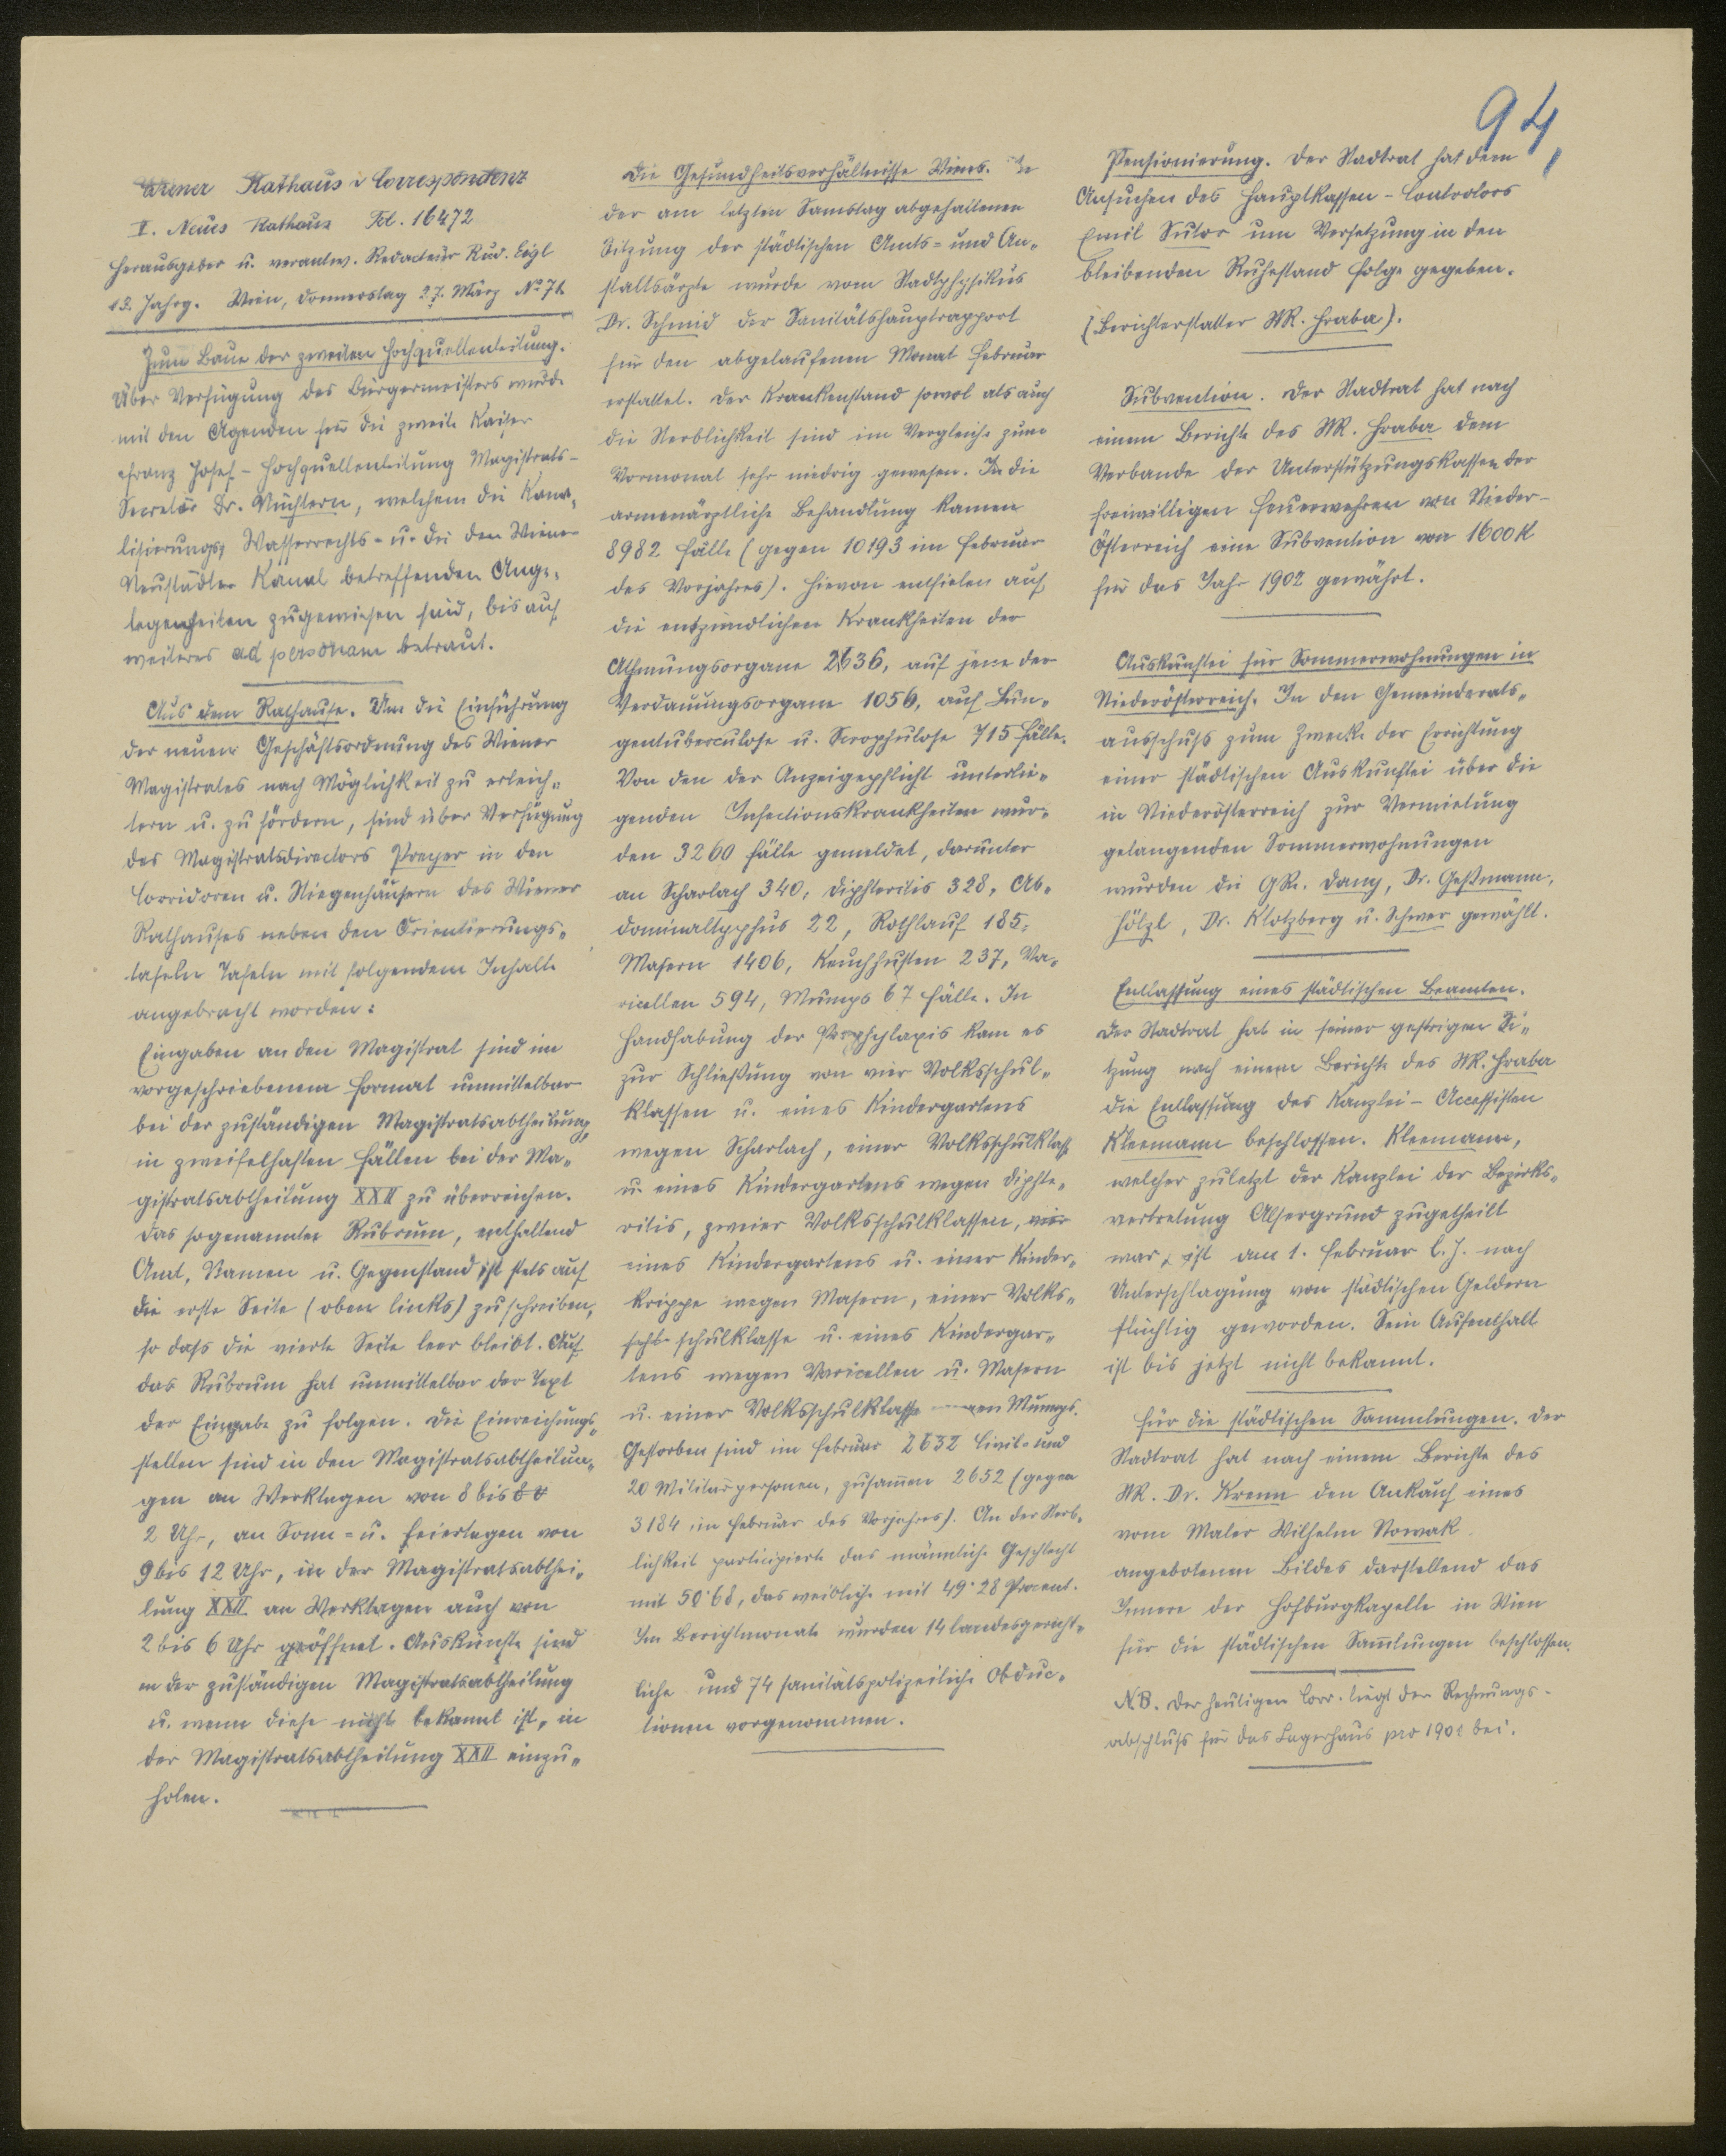 94,
Wiener Rathaus-Correspondenz
I. Neues Rathaus Tel. 16472
Herausgeber u. verantw. Redacteur Rud. Eigl
Jahrg. Wien, Donnerstag 27. März No 71
Zum Baue der zweiten Hochquellenleitung.
Über Verfügung des Bürgermeisters wurde
mit den Agenden für die zweite Kaiser
Franz Josef-Hochquellenleitung Magistrats-
Secretär Dr. Nüchtern, welchem die Kana-
lisierungs, Wasserrechts- u. die den Wiener-
Neustädter Kanal betreffenden Ange-
legenheiten zugewiesen sind, bis auf
weiteres ad personam betraut.
Aus dem Rathause. Um die Einführung
der neuen Geschäftsordnung des Wiener
Magistrates nach Möglichkeit zu erleich-
tern u. zu fördern, sind über Verfügung
des Magistratsdirectors Preyer in den
Corridoren u. Stiegenhäusern des Wiener
Rathauses neben den Orientierungs-
tafeln Tafeln mit folgendem Inhalte
angebracht worden:
Eingaben an den Magistrat sind im
vorgeschriebenem Format unmittelbar
bei der zuständigen Magistratsabtheilung,
in zweifelhaften Fällen bei der Ma-
gistratsabtheilung XXII zu überreichen.
Das sogenannte Rubrum, enthaltend
Amt, Namen u. Gegenstand ist stets auf
die erste Seite (oben links) zu schreiben,
so dass die vierte Seite leer bleibt. Auf
das Rubrum hat unmittelbar der Text
der Eingabe zu folgen. Die Einreichungs-
stellen sind in den Magistratsabtheilun-
gen an Werktagen von 8 bis
2 Uhr, an Sonn- u. Feiertagen von
9 bis 12 Uhr, in der Magistratsabthei-
lung XXII an Werktagen auch von
2 bis 6 Uhr geöffnet. Auskünfte sind
in der zuständigen Magistratsabtheilung
u. wenn diese nicht bekannt ist, in
der Magistratsabtheilung XXII einzu-
holen.
Die Gesundheitsverhältnisse Wiens. In
der am letzten Samstag abgehaltenen
Sitzung der städtischen Amts- und An-
staltsärzte wurde vom Stadtphysikus
Dr. Schmid der Sanitätshauptrapport
für den abgelaufenen Monat Februar
erstattet. Der Krankenstand sowol als auch
die Sterblichkeit sind im Vergleiche zum
Vormonat sehr niedrig gewesen. In die
armenärztliche Behandlung kamen
8982 Fälle (gegen 10193 im Februar
des Vorjahres). Hievon entfielen auf
die entzündlichen Krankheiten der
Athmungsorgane 2636, auf jene der
Verdauungsorgane 1056, auf Lun-
gentuberculose u. Scrophulose 715 Fälle.
Von den der Anzeigepflicht unterlie-
genden Infectionskrankheiten wur-
den 3260 Fälle gemeldet, darunter
an Scharlach 340, Diphteritis 328, Ab-
dominaltyphus 22, Rothlauf 185,
Masern 1406, Keuchhusten 237, Va-
ricellen 594, Mumps 67 Fälle. In
Handhabung der Prophylaxis kam es
zur Schließung von vier Volksschul-
klassen u. eines Kindergartens
wegen Scharlach, einer Volksschulklasse
u. eines Kindergartens wegen Diphte-
ritis, zweier Volksschulklassen, vier
eines Kindergartens u. einer Kinder-
krippe wegen Masern, einer Volks-
schulklasse u. eines Kindergar-
tens wegen Varicellen u. Masern
u. einer Volksschulklasse wegen Mumps.
Gestorben sind im Februar 2632 Civil- und
20 Militärpersonen, zusammen 2652 (gegen
3184 im Februar des Vorjahres). An der Sterb-
lichkeit participierte das männliche Geschlecht
mit 50·68, das weibliche mit 49·28 Procent.
Im Berichtmonate wurden 14 landesgericht-
liche und 74 sanitätspolizeiliche Obduc-
tionen vorgenommen.
Pensionierung. Der Stadtrat hat dem
Ansuchen des Hauptkassen-Controlors
Emil Sutor um Versetzung in den
bleibenden Ruhestand Folge gegeben.
(Berichterstatter StR. Hraba).
Subvention. Der Stadtrat hat nach
einem Berichte des StR. Hraba dem
Verbande der Unterstützungskassen der
freiwilligen Feuerwehren von Nieder-
Österreich eine Subvention von 1600 K
für das Jahr 1902 gewährt.
Auskunftei für Sommerwohnungen in
Niederösterreich. In den Gemeinderats-
ausschuss zum Zwecke der Errichtung
einer städtischen Auskunftei über die
in Niederösterreich zur Vermietung
gelangenden Sommerwohnungen
wurden die GRe. Dany, Dr. Geßmann,
Hölzl, Dr. Klotzberg u. Schwer gewählt.
Entlassung eines städtischen Beamten.
Der Stadtrat hat in seiner gestrigen Si-
tzung nach einem Berichte des StR. Hraba
die Entlassung des Kanzlei-Accessisten
Kleemann beschlossen. Kleemann,
welcher zuletzt der Kanzlei der Bezirks-
vertretung Alsergrund zugetheilt
war, ist am 1. Februar l. J. nach
Unterschlagung von städtischen Geldern
flüchtig geworden. Sein Aufenthalt
ist bis jetzt nicht bekannt.
Für die städtischen Sammlungen. Der
Stadtrat hat nach einem Berichte des
StR. Dr. Krenn den Ankauf eines
vom Maler Wilhelm Nowak
angebotenen Bildes darstellend das
Innere der Hofburgkapelle in Wien
für die städtischen Sammlungen beschlossen.
N.B. Der heutigen Corr. liegt der Rechnungs-
abschluss für das Lagerhaus pro 1901 bei.